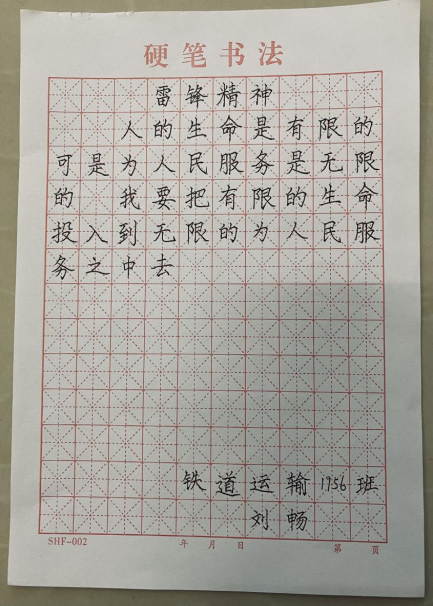 硬笔书法
雷锋精神
人的生命是有限的
可是为人民服务是无限
的 我要把有限的生命
投入到无限的为人民服
务之中去
铁道运输1956班
刘畅
SHF-002 年 月 日 第 页